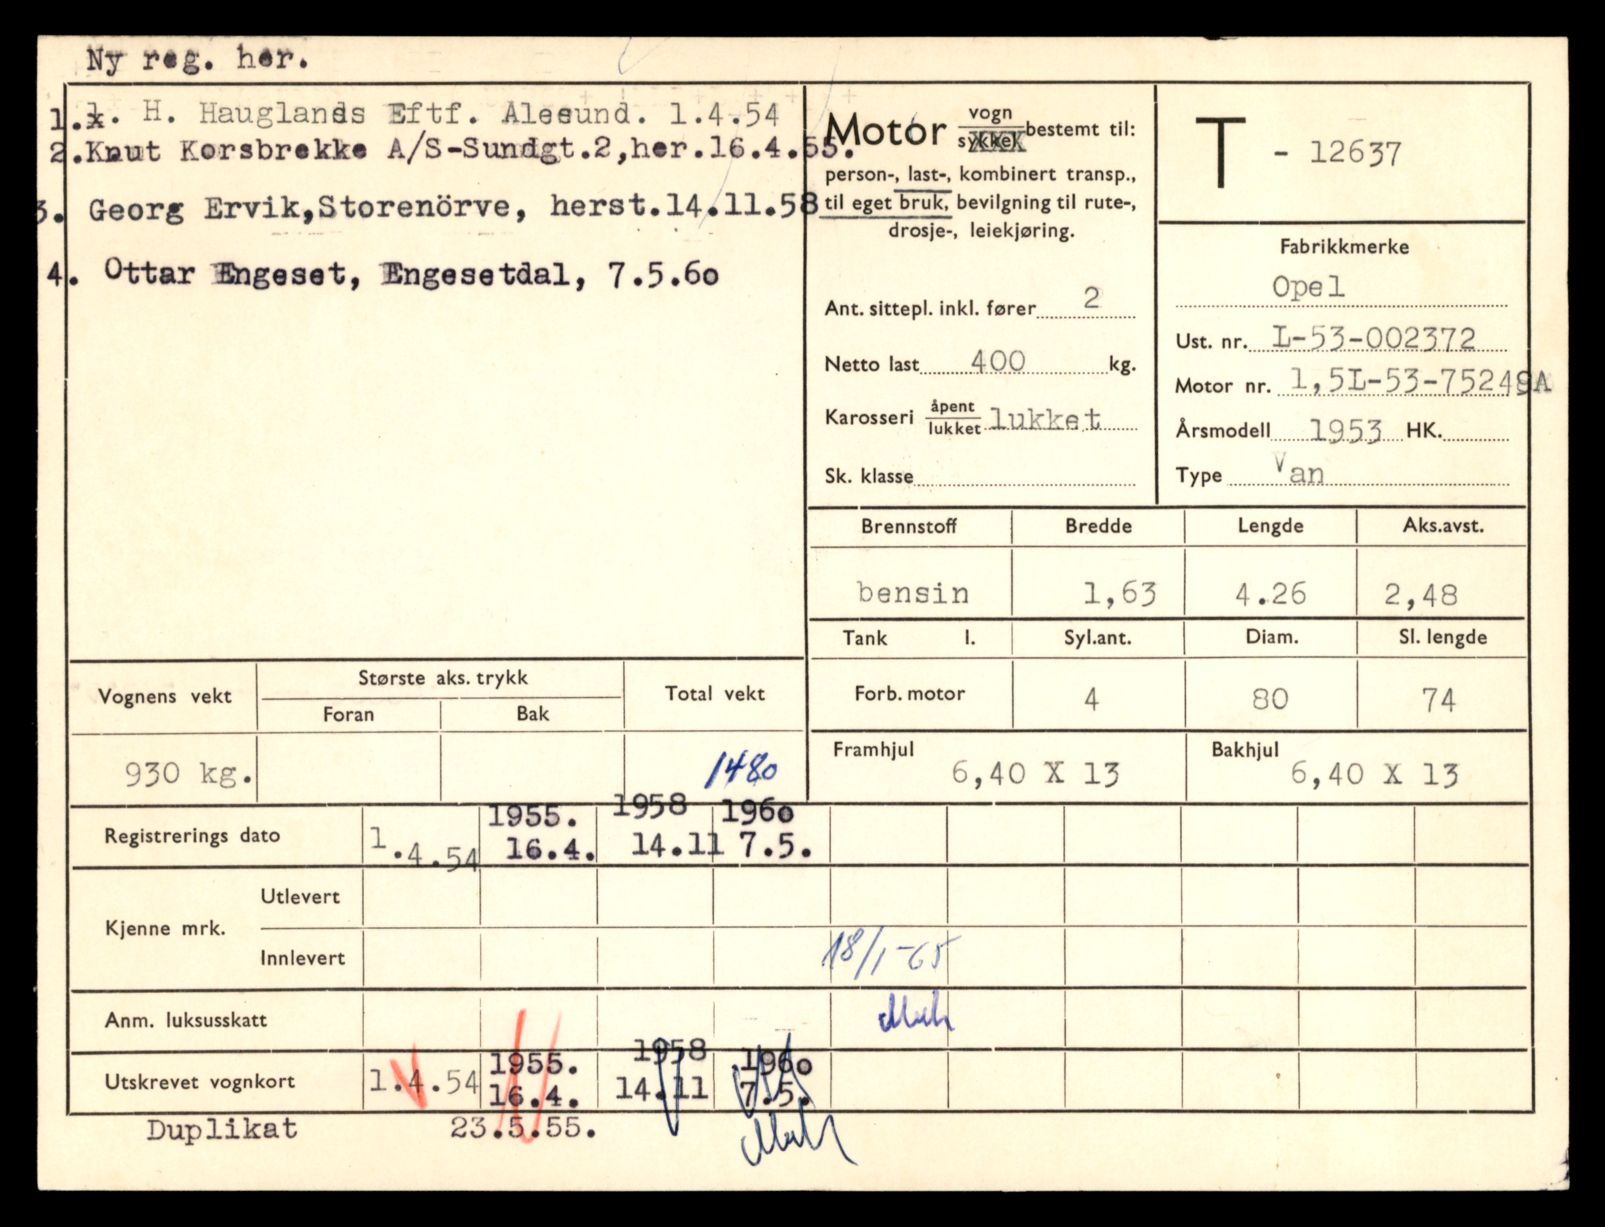 Ny reg. her.
1.x. H. Hauglands Eftf. Alesund. 1.4.54
2.Knut Korsbrekke A/S-Sundgt.2,her.16.4.55.
3. Georg Ervik,Storenörve, herst.14.11.58
4. Ottar Engeset, Engesetdal, 7.5.60
Motor vogn sykkel bestemt til:
person-, last-, kombinert transp.,
til eget bruk, bevilgning til rute-,
drosje-, leiekjøring.
Ant. sittepl. inkl. fører 2
Netto last 400 kg.
Karosseri åpent lukket lukket
Sk. klasse
T - 12637
Fabrikkmerke
Opel
Ust. nr. L-53-002372
Motor nr. 1,5L-53-75249A
Årsmodell 1953 HK.
Type Van
Brennstoff Bredde Lengde Aks.avst.
bensin 1,63 4.26 2,48
Tank l. Syl.ant. Diam. Sl. lengde
Forb. motor 4 80 74
Framhjul 6,40 X 13 Bakhjul 6,40 X 13
Vognens vekt Største aks. trykk Total vekt
Foran Bak
930 kg. 1480
Registrerings dato 1.4.54 1955. 16.4. 1958 14.11 1960 7.5.
Kjenne mrk. Utlevert
Innlevert 18/1-65
Anm. luksusskatt
Utskrevet vognkort 1.4.54 1955. 16.4. 1958 14.11 1960 7.5.
Duplikat 23.5.55.